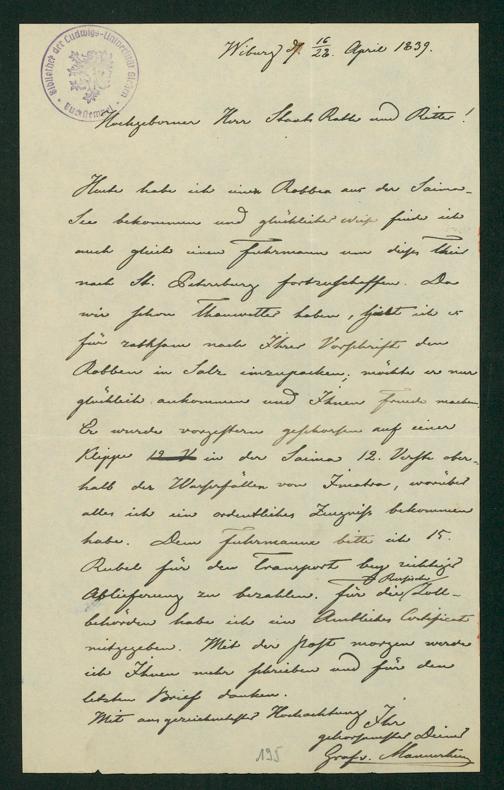 Bibliothek der Ludwigs-Universität Gießen
Wiburg d. 16/28. April 1839.
Hochgeborner Herr Staats Rath und Ritter!
Heute habe ich einen Robben aus der Saima-
See bekommen und glücklicher weise finde ich
auch gleich einen Fuhrmann um dieß Thier
nach St. Petersburg fortzuschaffen. Da
wir schon Thauwetter haben, hielt ich es
für rathsam nach Ihrer Vorschrift den
Robben in Salz einzupacken; möchte er nur
glücklich ankommen und Ihnen Freude machen.
Er wurde vorgestern geschossen auf einer
Klippe in der Saima 12. Werste ober-
halb der Wasserfällen von Imatra, worüber
alles ich ein ordentliches Zeugniß bekommen
habe. Dem Fuhrmanne bitte ich 15.
Rubel für den Transport bey richtiger
Ablieferung zu bezahlen. Für die Russische Zoll-
behörden habe ich ein Amtliches Certificat
mitgegeben. Mit der Post morgen werde
ich Ihnen mehr schrieben und für den
letzten Brief danken.
Mit ausgezeichnetster Hochachtung Ihr
gehorsamster Diener
Graf v. Mannerheim
195